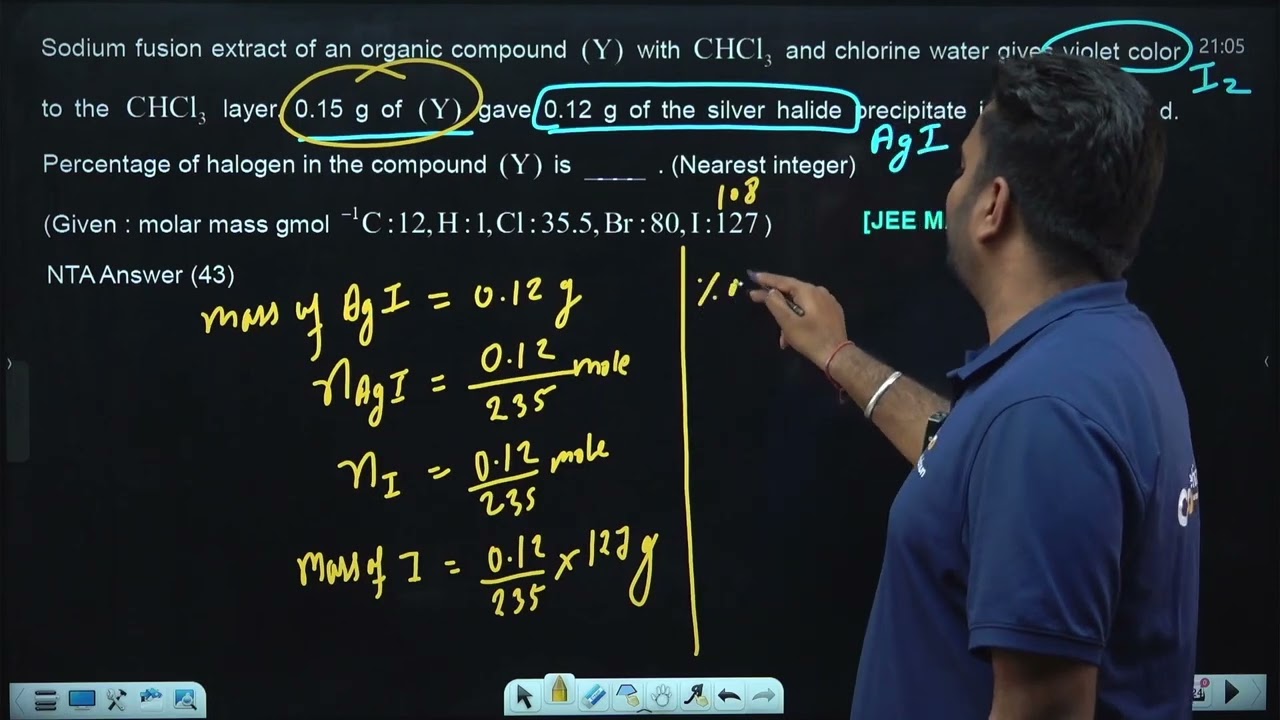 Sodium fusion extract of an organic compound (Y) with CHCl₃ and chlorine water gives violet color
21:05
I₂
to the CHCl₃ layer. 0.15 g of (Y) gave 0.12 g of the silver halide precipitate
d.
AgI
Percentage of halogen in the compound (Y) is ____ . (Nearest integer)
108
(Given : molar mass gmol ⁻¹C : 12, H : 1, Cl : 35.5, Br : 80, I : 127)
[JEE M
NTA Answer (43)
mass of AgI = 0.12 g
n_AgI = 0.12/235 mole
n_I = 0.12/235 mole
Mass of I = 0.12/235 × 127 g
%